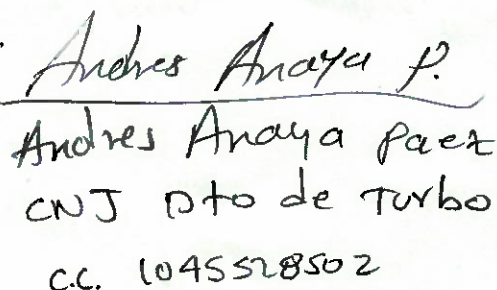 Andres Anaya P.
Andres Anaya Paez
CNJ Dto de Turbo
C.C. 1045528502